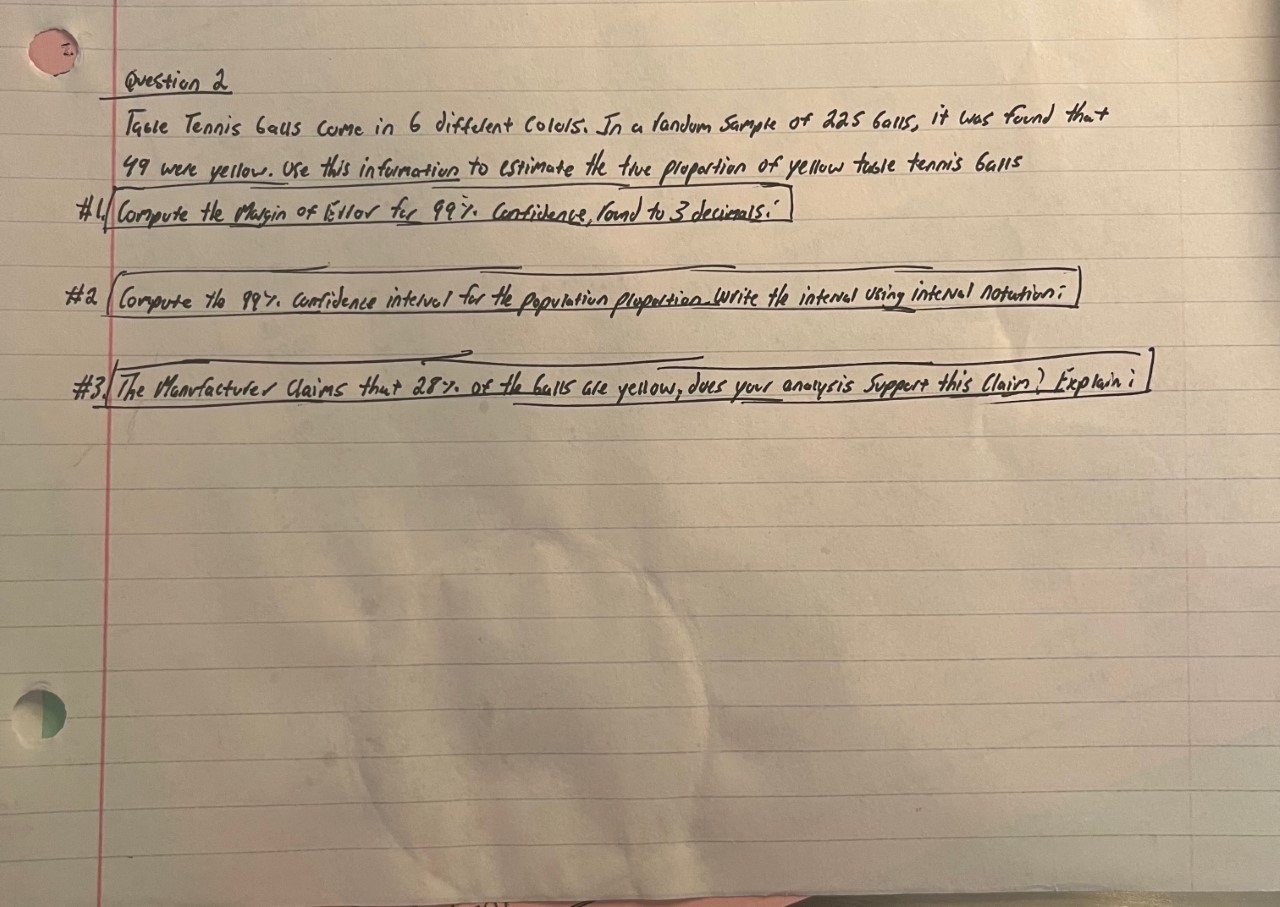 Question 2
Table Tennis balls come in 6 different colors. In a random sample of 225 balls, it was found that
49 were yellow. Use this information to estimate the true proportion of yellow table tennis balls
#1. Compute the Margin of Error for 99% Confidence, round to 3 decimals:
#2 Compute the 99% confidence interval for the population proportion. Write the interval using interval notation:
#3. The Manufacturer Claims that 28% of the balls are yellow, does your analysis Support this Claim? Explain: